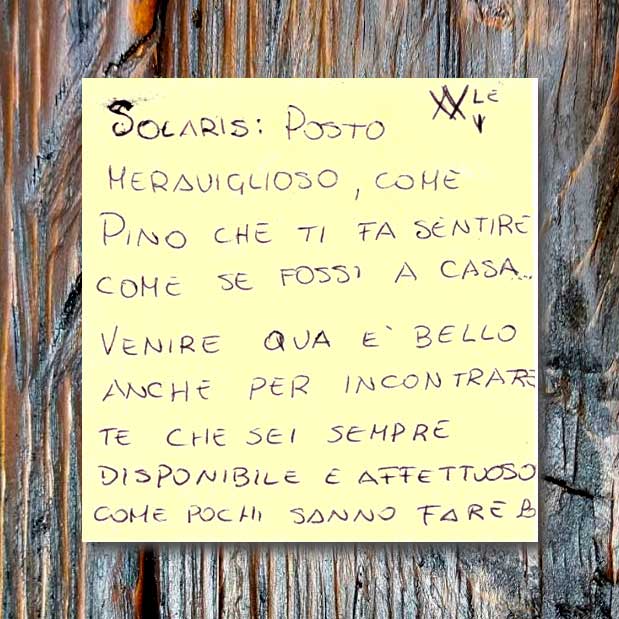 SOLARIS: POSTO LE
MERAVIGLIOSO, COME
PINO CHE TI FA SENTIRE
COME SE FOSSI A CASA...
VENIRE QUA E' BELLO
ANCHE PER INCONTRARE
TE CHE SEI SEMPRE
DISPONIBILE E AFFETTUOSO
COME POCHI SANNO FARE